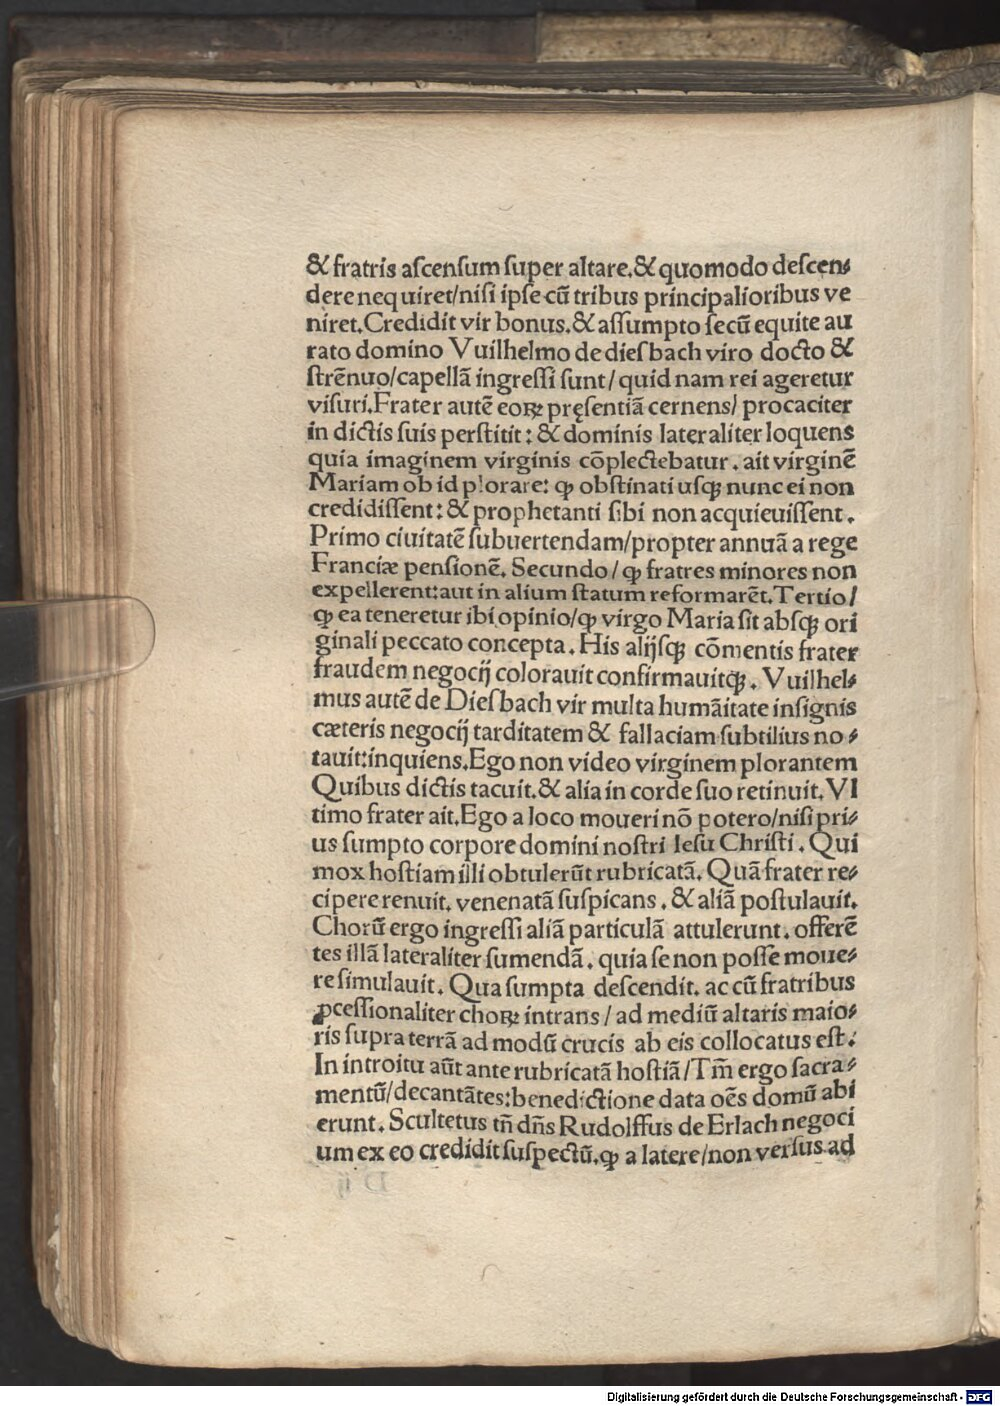 & fratris ascensum super altare. & quomodo descen⸗
dere nequiret/nisi ipse cū tribus principalioribus ve
niret. Credidit vir bonus. & assumpto secū equite au
rato domino Vuilhelmo de diesbach viro docto &
strēnuo/capellā ingressi sunt/quid nam rei ageretur
visuri. Frater autē eoꝝ pręsentiā cernens/procaciter
in dictis suis perstitit: & dominis lateraliter loquens
quia imaginem virginis cōplectebatur. ait virginē
Mariam ob id plorare: ꝙ obstinati usqꝫ nunc ei non
credidissent: & prophetanti sibi non acquieuissent.
Primo ciuitatē subuertendam/propter annuā a rege
Franciæ pensionē. Secundo/ꝙ fratres minores non
expellerent:aut in alium statum reformarēt. Tertio/
ꝙ ea teneretur ibi opinio/ꝙ virgo Maria sit absqꝫ ori
ginali peccato concepta. His alijsqꝫ cōmentis frater
fraudem negocij colorauit confirmauitqꝫ. Vuilhel⸗
mus autē de Diesbach vir multa humāitate insignis
cæteris negocij tarditatem & fallaciam subtilius no⸗
tauit:inquiens. Ego non video virginem plorantem
Quibus dictis tacuit. & alia in corde suo retinuit. Vl
timo frater ait. Ego a loco moueri nō potero/nisi pri⸗
us sumpto corpore domini nostri Iesu Christi. Qui
mox hostiam illi obtulerūt rubricatā. Quā frater re⸗
cipere renuit. venenatā suspicans. & aliā postulauit.
Chorū ergo ingressi aliā particulā attulerunt. offerē
tes illā lateraliter sumendā. quia se non posse moue⸗
re simulauit. Qua sumpta descendit. ac cū fratribus
ꝓcessionaliter choꝝ intrans/ad mediū altaris maio⸗
ris supra terrā ad modū crucis ab eis collocatus est.
In introitu aūt ante rubricatā hostiā/Tm̄ ergo sacra⸗
mentū/decantātes:benedictione data oēs domū abi
erunt. Scultetus tn̄ dn̄s Rudolffus de Erlach negoci
um ex eo credidit suspectū. ꝙ a latere/non versus ad
Digitalisierung gefördert durch die Deutsche Forschungsgemeinschaft - DFG